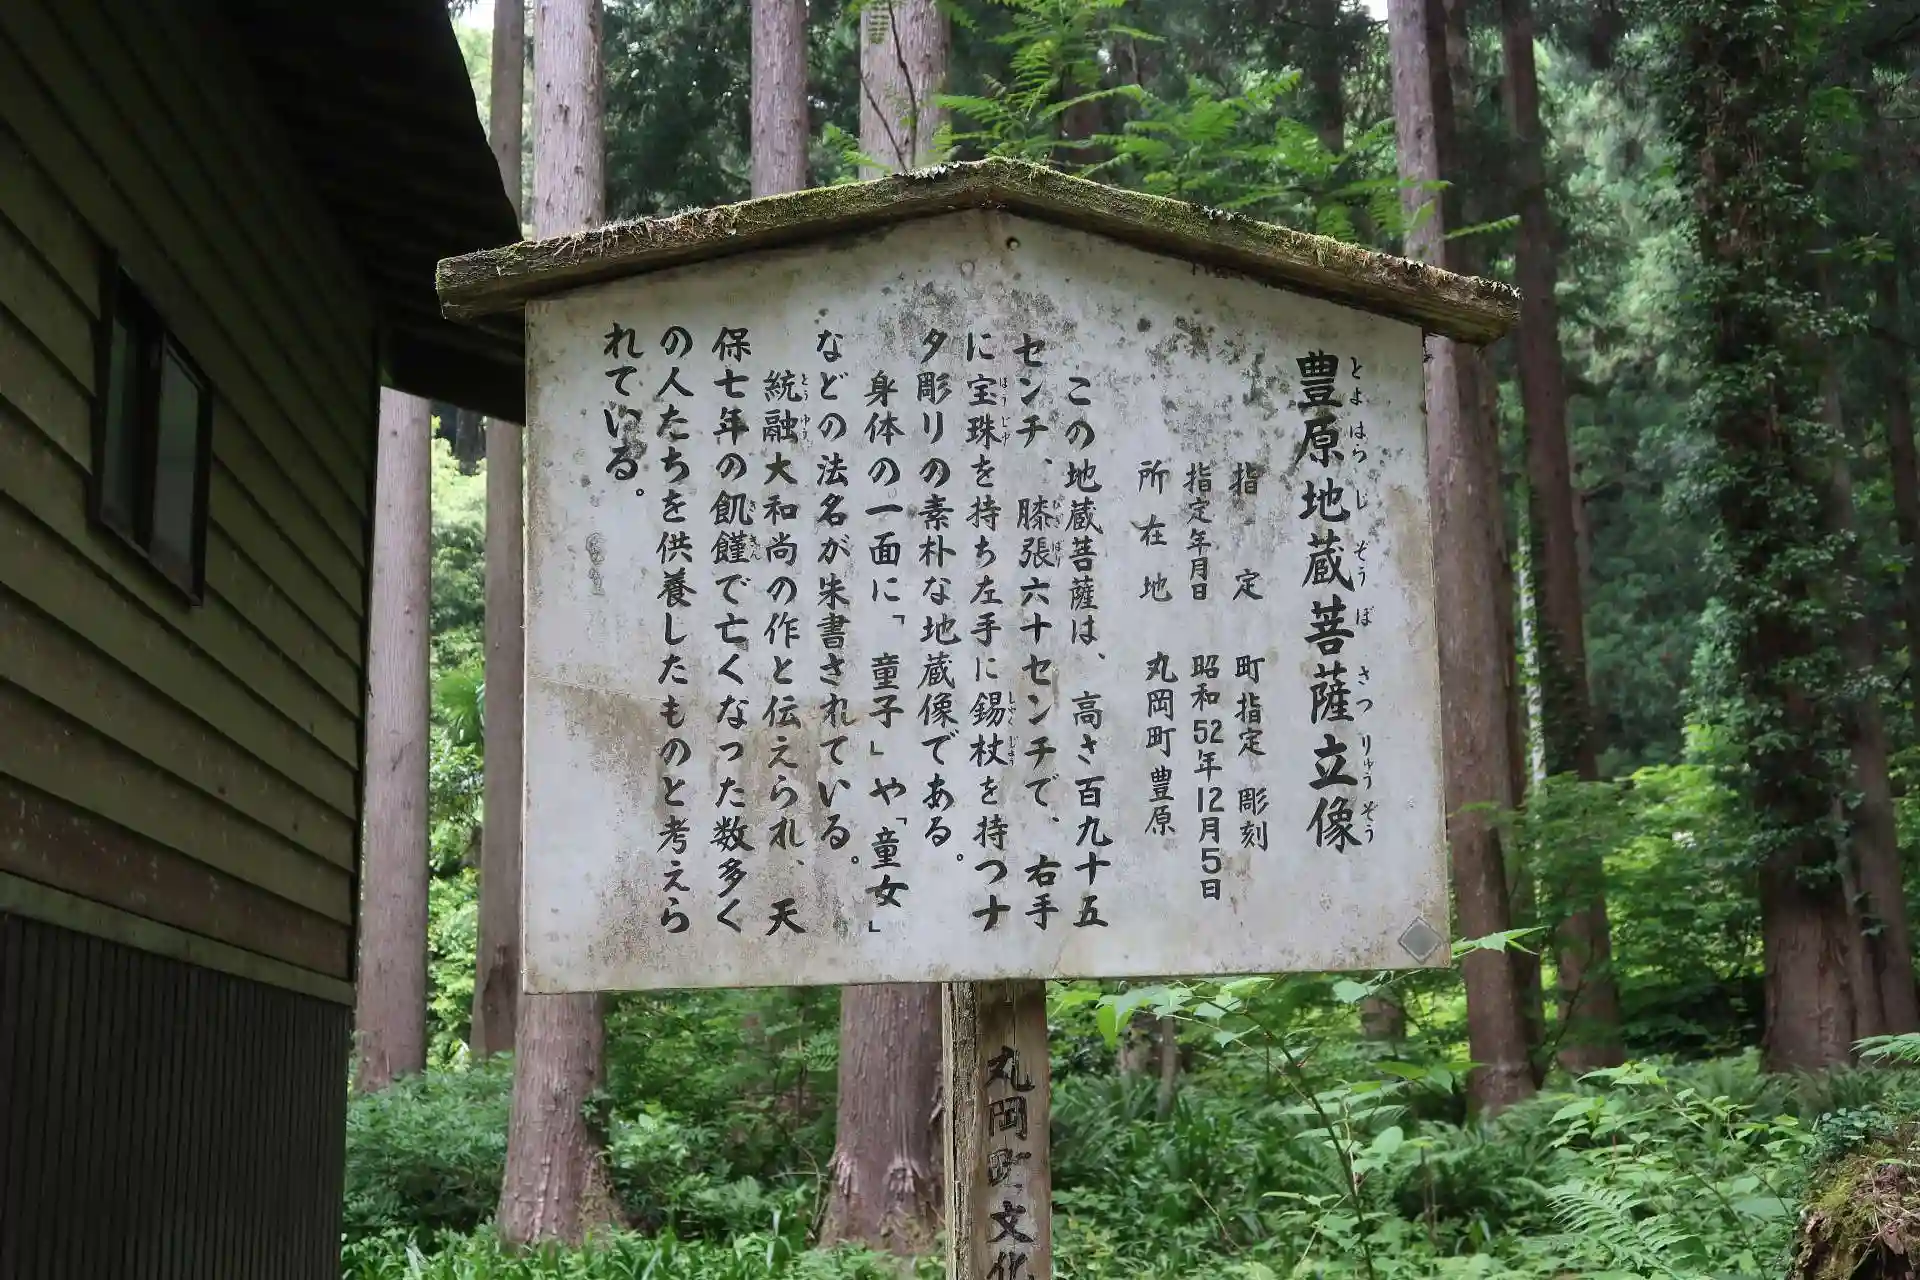 豊原地蔵菩薩立像
とよはらじぞうぼさつりゅうぞう
指定 町指定 彫刻
指定年月日 昭和52年12月5日
所在地 丸岡町豊原
この地蔵菩薩は、高さ百九十五
センチ、膝張六十センチで、右手
ひざばり
に宝珠を持ち左手に錫杖を持つナ
ほうじゅ しゃくじょう
タ彫りの素朴な地蔵像である。
身体の一面に「童子」や「童女」
などの法名が朱書されている。
統融大和尚の作と伝えられ、天
とうゆう
保七年の飢饉で亡くなった数多く
ききん
の人たちを供養したものと考えら
れている。
丸岡町文化